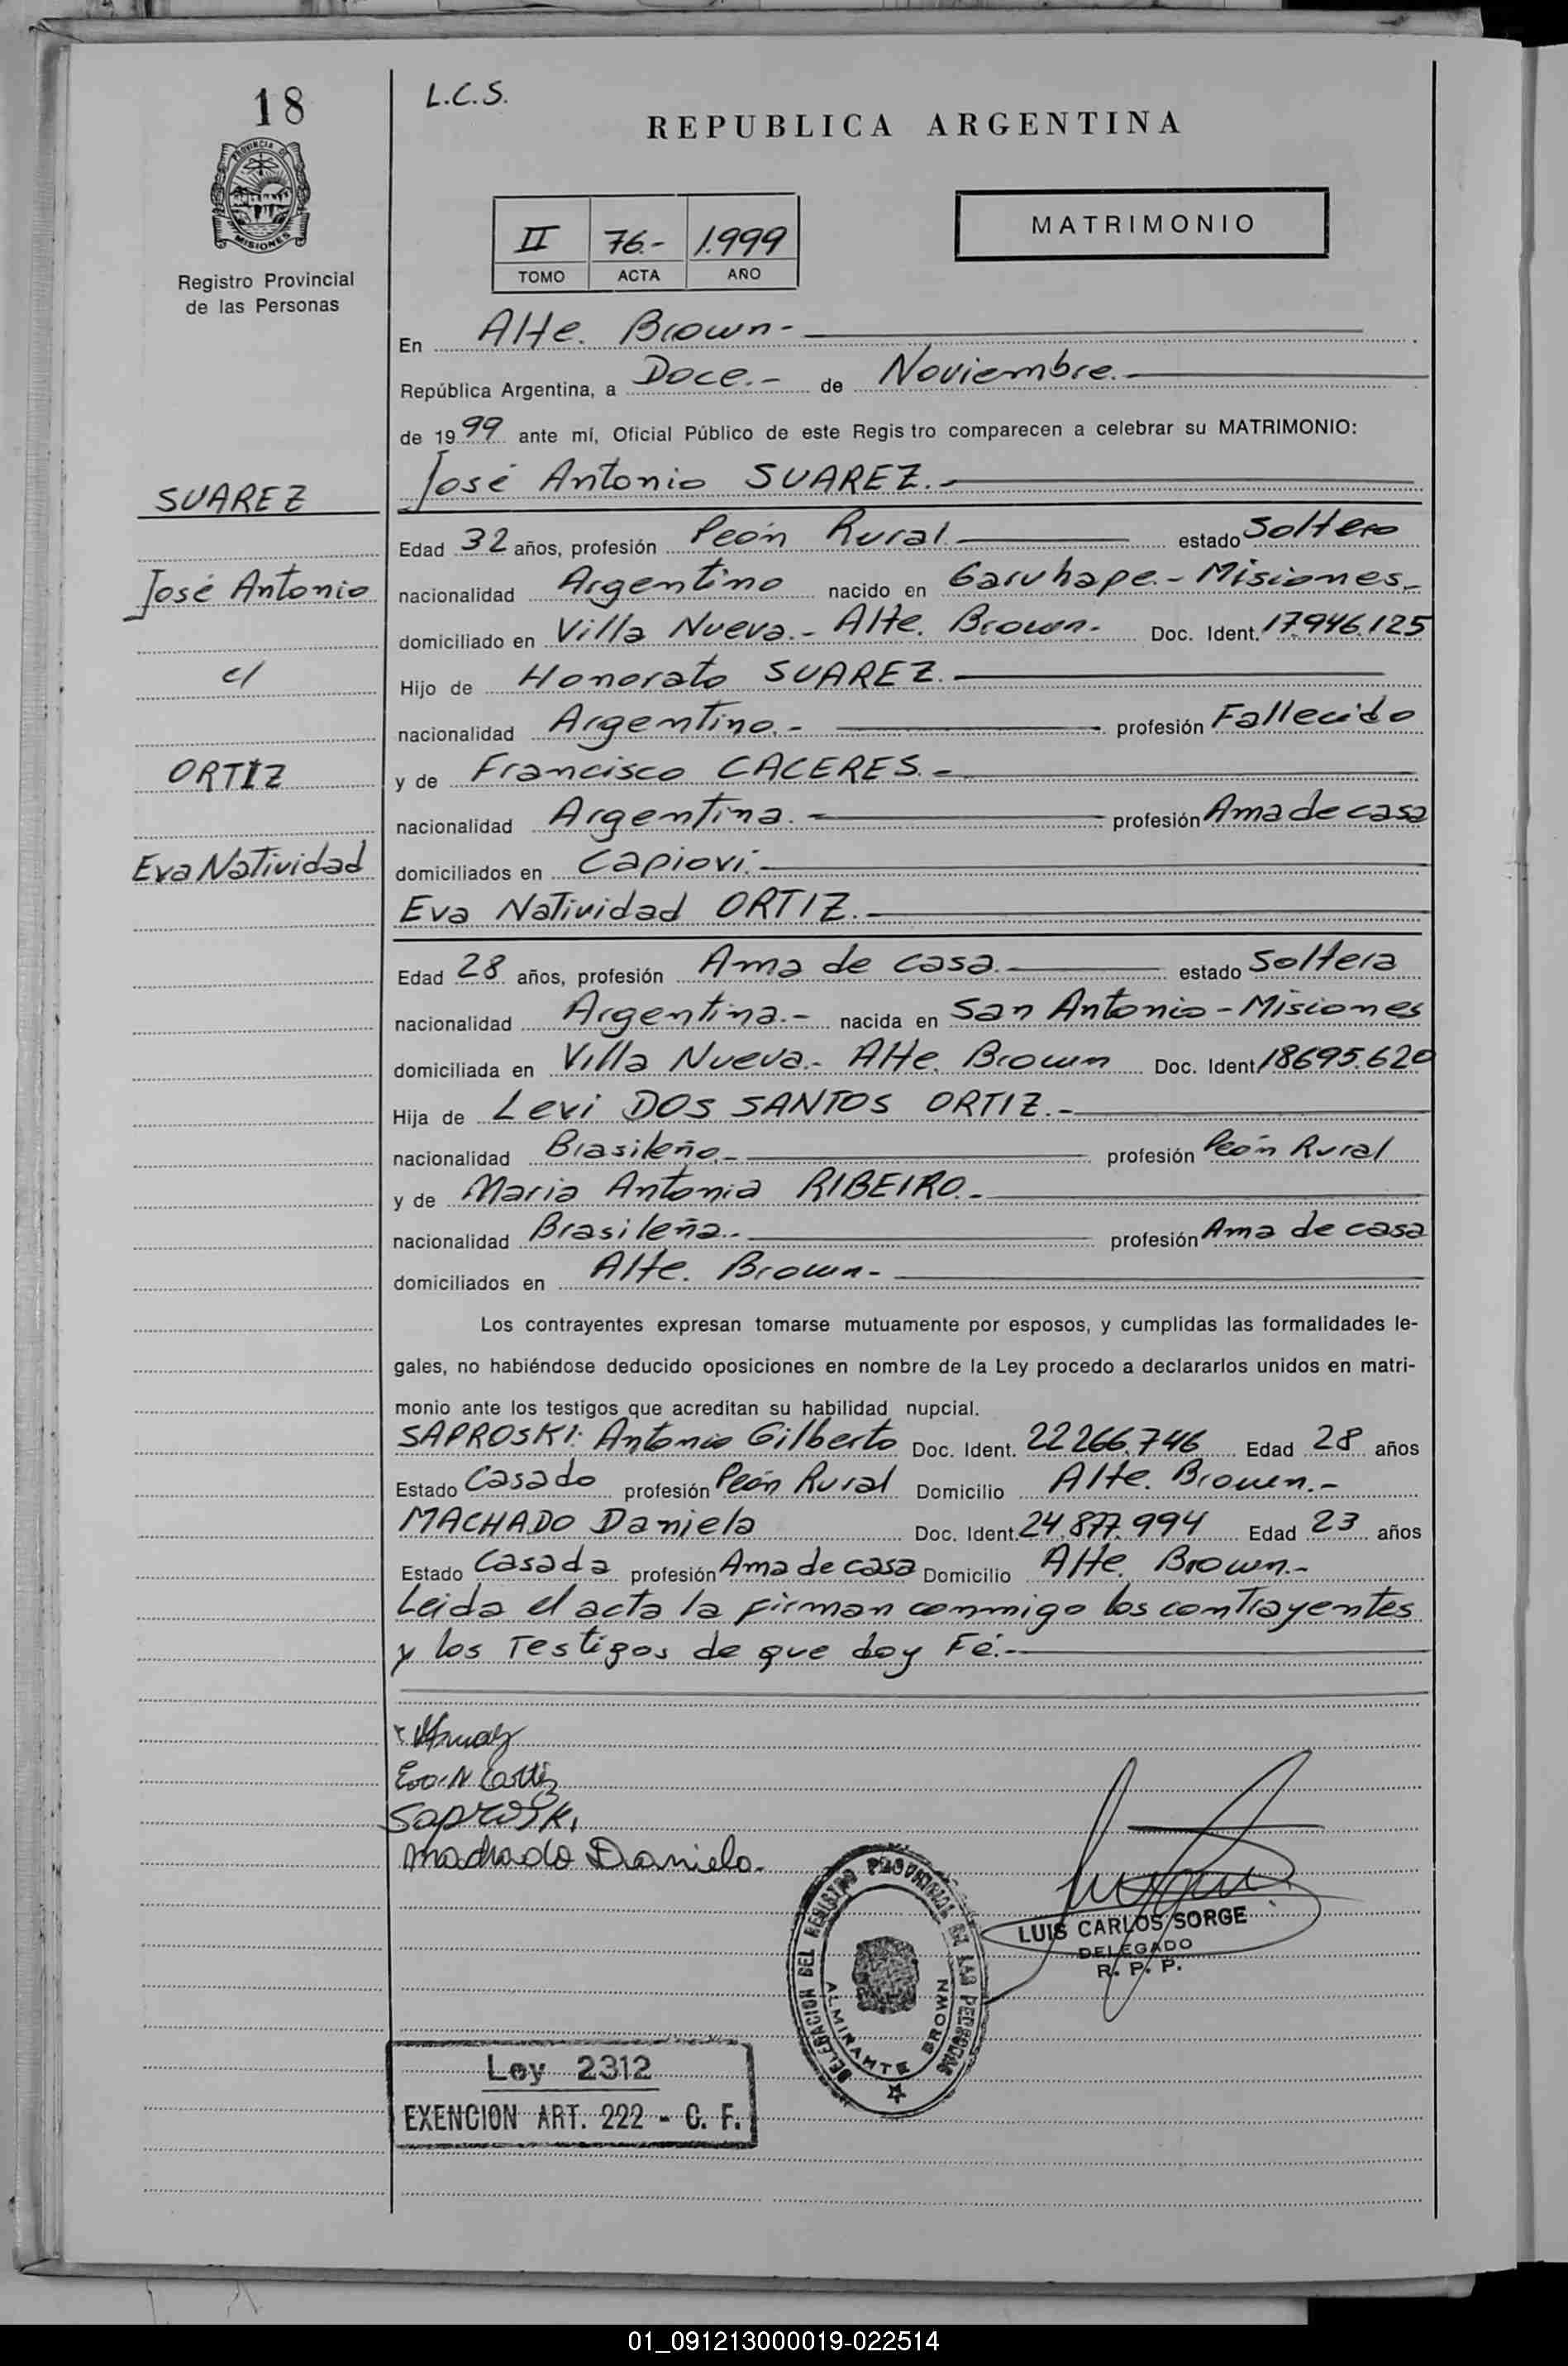 18
L.C.S.
REPUBLICA ARGENTINA
PROVINCIA DE MISIONES
Registro Provincial
de las Personas
II 76.- 1.999
TOMO ACTA AÑO
MATRIMONIO
En Alte. Brown.-
República Argentina, a Doce.- de Noviembre.-
de 1999 ante mí, Oficial Público de este Regis tro comparecen a celebrar su MATRIMONIO:
José Antonio SUAREZ.-
SUAREZ
Edad 32 años, profesión Peón Rural.- estado Soltero
José Antonio
nacionalidad Argentino nacido en Garuhape.- Misiones.-
domiciliado en Villa Nueva.- Alte. Brown.- Doc. Ident. 17.946.125
c/
Hijo de Honorato SUAREZ.-
nacionalidad Argentino.- profesión Fallecido
ORTIZ
y de Francisco CACERES.-
nacionalidad Argentina.- profesión Ama de casa
Eva Natividad
domiciliados en Capiovi.-
Eva Natividad ORTIZ.-
Edad 28 años, profesión Ama de casa.- estado Soltera
nacionalidad Argentina.- nacida en San Antonio - Misiones
domiciliada en Villa Nueva.- Alte. Brown Doc. Ident. 18695.620
Hija de Levi DOS SANTOS ORTIZ.-
nacionalidad Brasileño.- profesión Peón Rural
y de Maria Antonia RIBEIRO.-
nacionalidad Brasileña.- profesión Ama de casa
domiciliados en Alte. Brown.-
Los contrayentes expresan tomarse mutuamente por esposos, y cumplidas las formalidades le-
gales, no habiéndose deducido oposiciones en nombre de la Ley procedo a declararlos unidos en matri-
monio ante los testigos que acreditan su habilidad nupcial.
SAPROSKI: Antonio Gilberto Doc. Ident. 22266.746 Edad 28 años
Estado Casado profesión Peón Rural Domicilio Alte. Brown.-
MACHADO Daniela Doc. Ident. 24.877.994 Edad 23 años
Estado Casada profesión Ama de casa Domicilio Alte. Brown.-
Leida el acta la firman conmigo los contrayentes
y los Testigos de que doy Fé.-
Saproski
Machado Daniela.
DELEGACION DEL REGISTRO PROVINCIAL DE LAS PERSONAS
ALMIRANTE BROWN
LUIS CARLOS SORGE
DELEGADO
R. P. P.
Ley 2312
EXENCION ART. 222 - C. F.
01_091213000019-022514